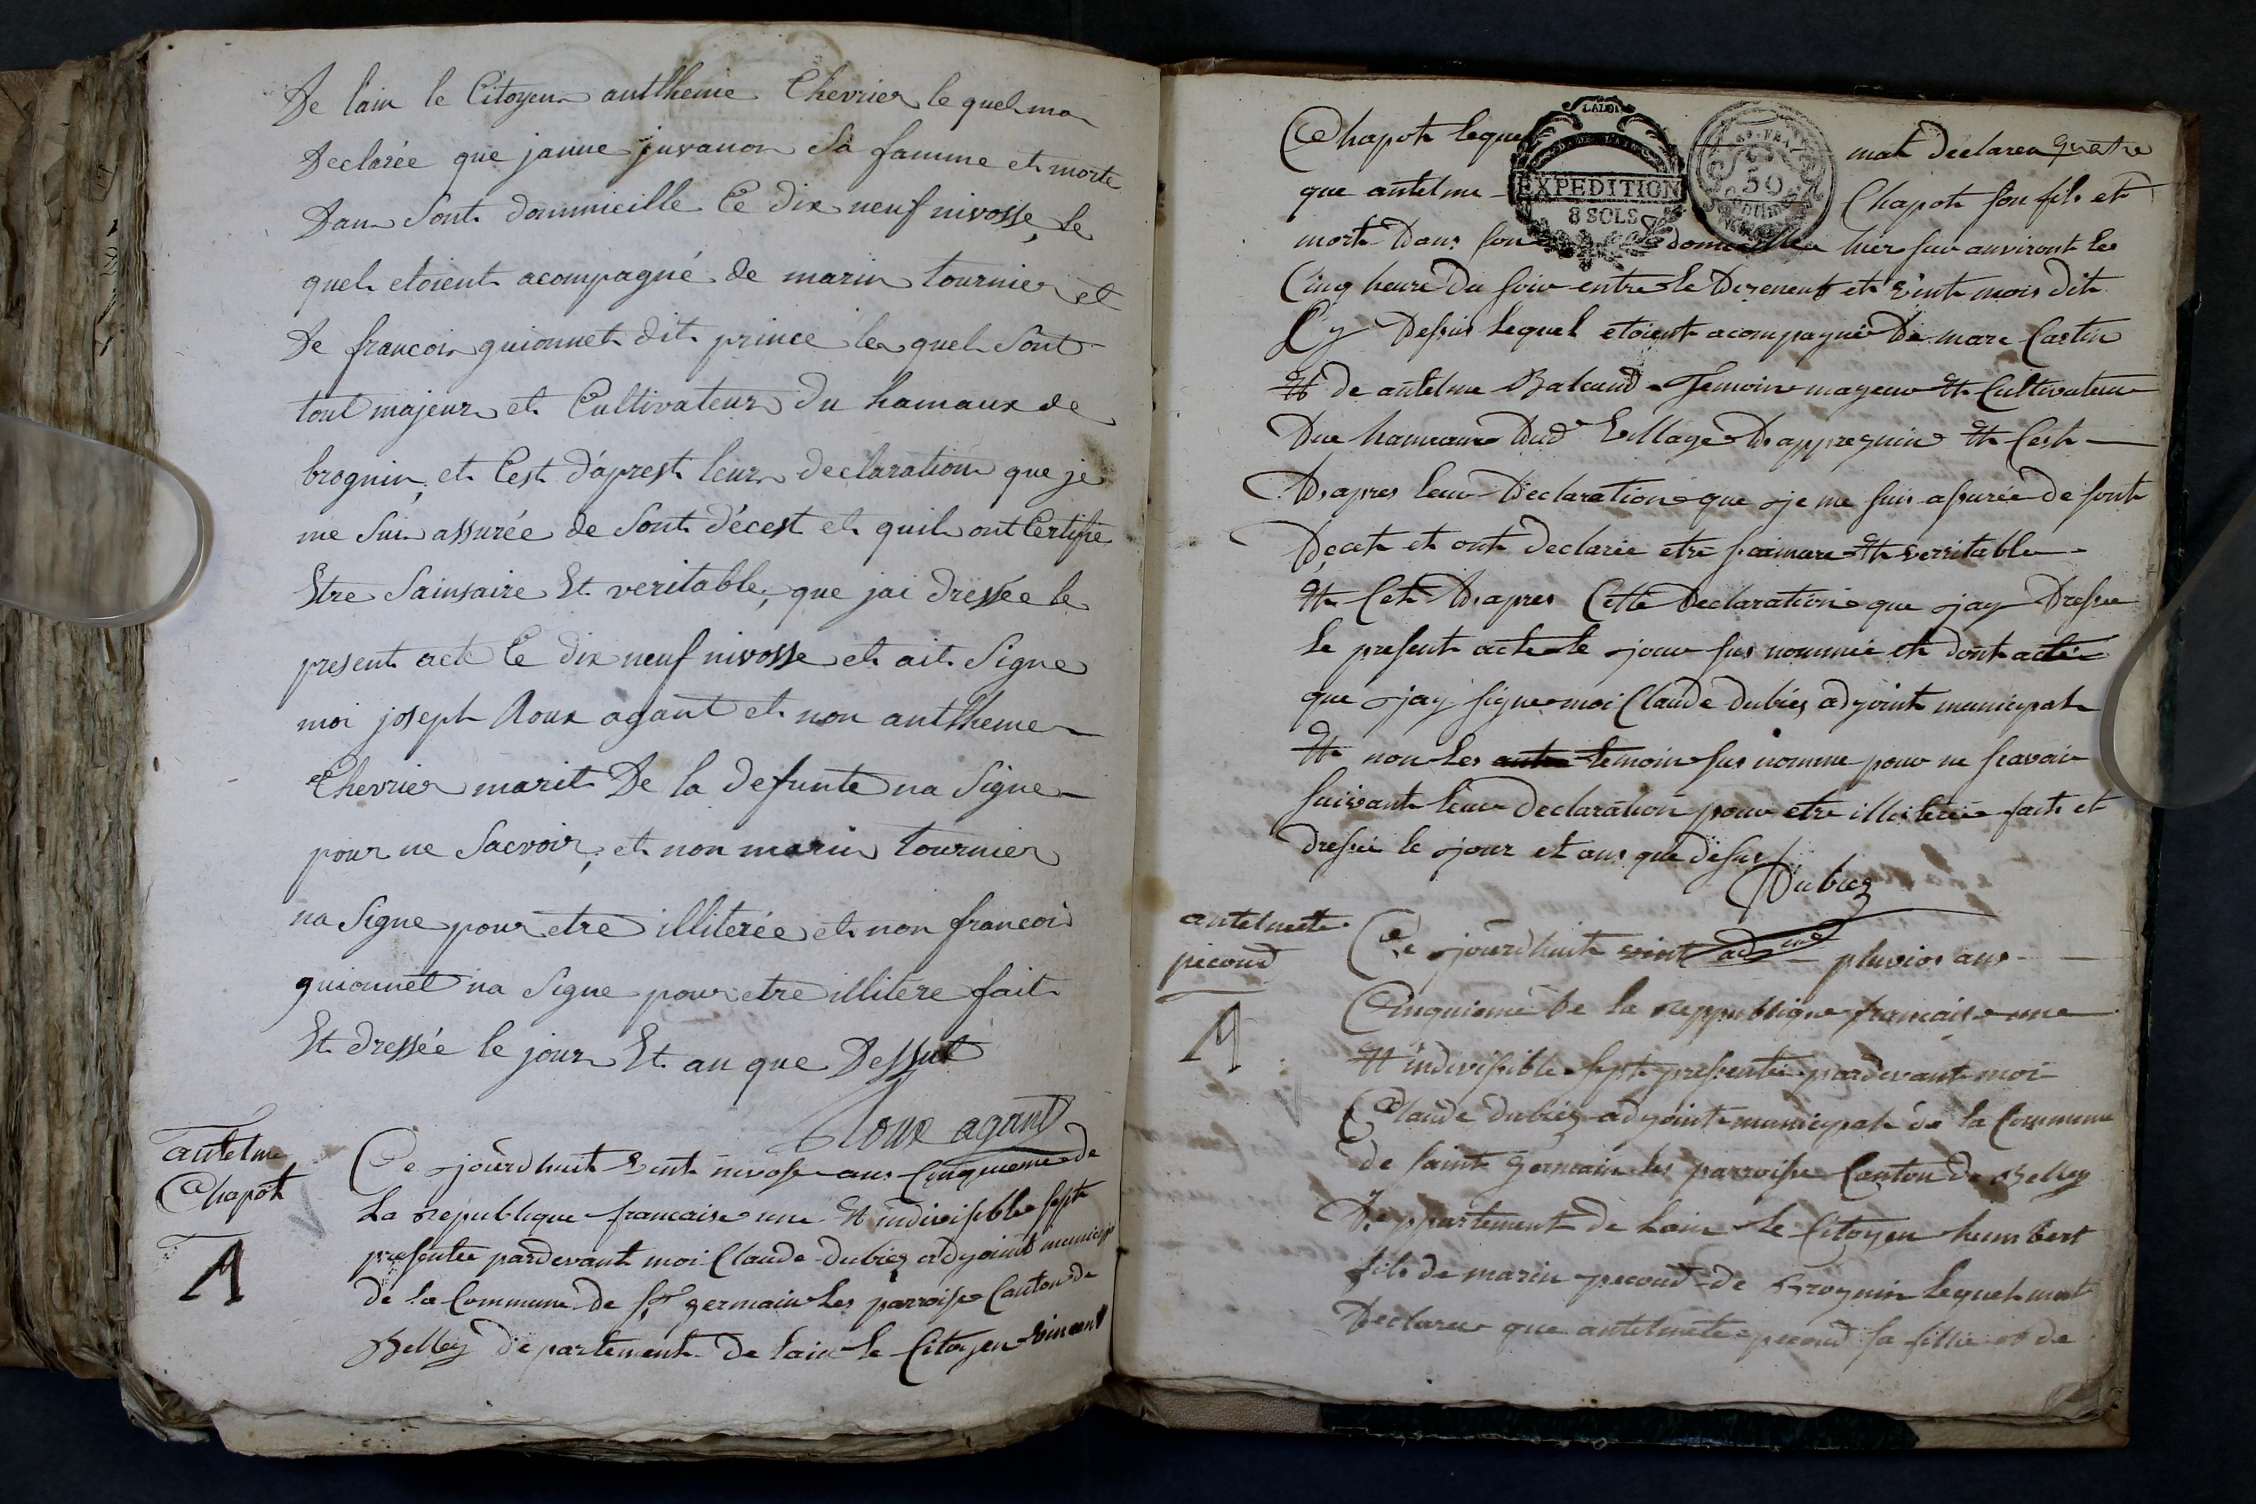 De lain le Citoyen anthheme Chevrier le quel ma
Declarée que janne juvanon Sa famme et morte
Dan Sont dommicille Ce dix neuf nivosse, le
quel etoient acompagné de marin tournier et
De francoir guionnet dit prince le quel Sont
tout majeur et Cultivateur Du hamaux de
brognin, et Cest d'aprest leur declaration que je
me Sui assurée de Sont décest et quil ont Certifie
Etre Sainsaire Et veritable, que jai dressée le
present act Ce dix neuf nivosse et ait Signe
moi joseph Roux agant et non anthheme
Chevrier marit De la defunte na Signe
pour ne Sacvoir, et non marin tournier
na Signe pour etre illiterée et non francoi
guionnet na Signe pour etre illitere fait
Et dressée le jour Et an que Dessut
Roux agant
antelme
Chapot
A
Ce jourdhuit vint nivose ans Cinquieme de
La republique francaise une Et indivisible sest
presentee pardevant moi Claude dubiez adjoint municip
de la Commune de st germain les parroise Canton de
Belley departement de lain le Citoyen vincent
Chapot lequel mat declarea quatre
que antelme Chapot son fils et
mort Dans son domicille hier sur anviront les
Cinq heure du soir entre le Dizeneuf et vint mois dit
Cy Dessus lequel etoient acompagnie De marc Castin
Et de antelme Balcund Temoin mageur Et Cultivateur
Due hameaux Dud Village Dappregnin Et Cest
Dapres leur Declaration que je me suis assurée de sont
Decet et ont declarée etre sainsere Et verritable
Et Cet Dapres Cette Declaration que jay Dresse
Le present acte le jour sus nommée et dont acte
que jay signe moi Claude dubiez adjoint municipal
Et non les temoin sus nomme pour ne scavoir
suivant leur declaration pour etre illiterée fait et
dressée le jour et ans que desus
Dubiez
adm
antelmete
picoud
A
Ce jourdhuit vint pluvios ans
Cinquieme De la reppublique francaise une
Et indivisible sest presentée pardevant moi
Claude dubiez adjoint municipal de la Commune
de saint germain les parroise Canton de Belley
Deppartement de Lain le Citoyen humbert
fils de marin picoud de Brognin lequel mat
Declarer que antelmete picoud sa fillie et de
LA LOI
EXPEDITION
8 SOLS
50